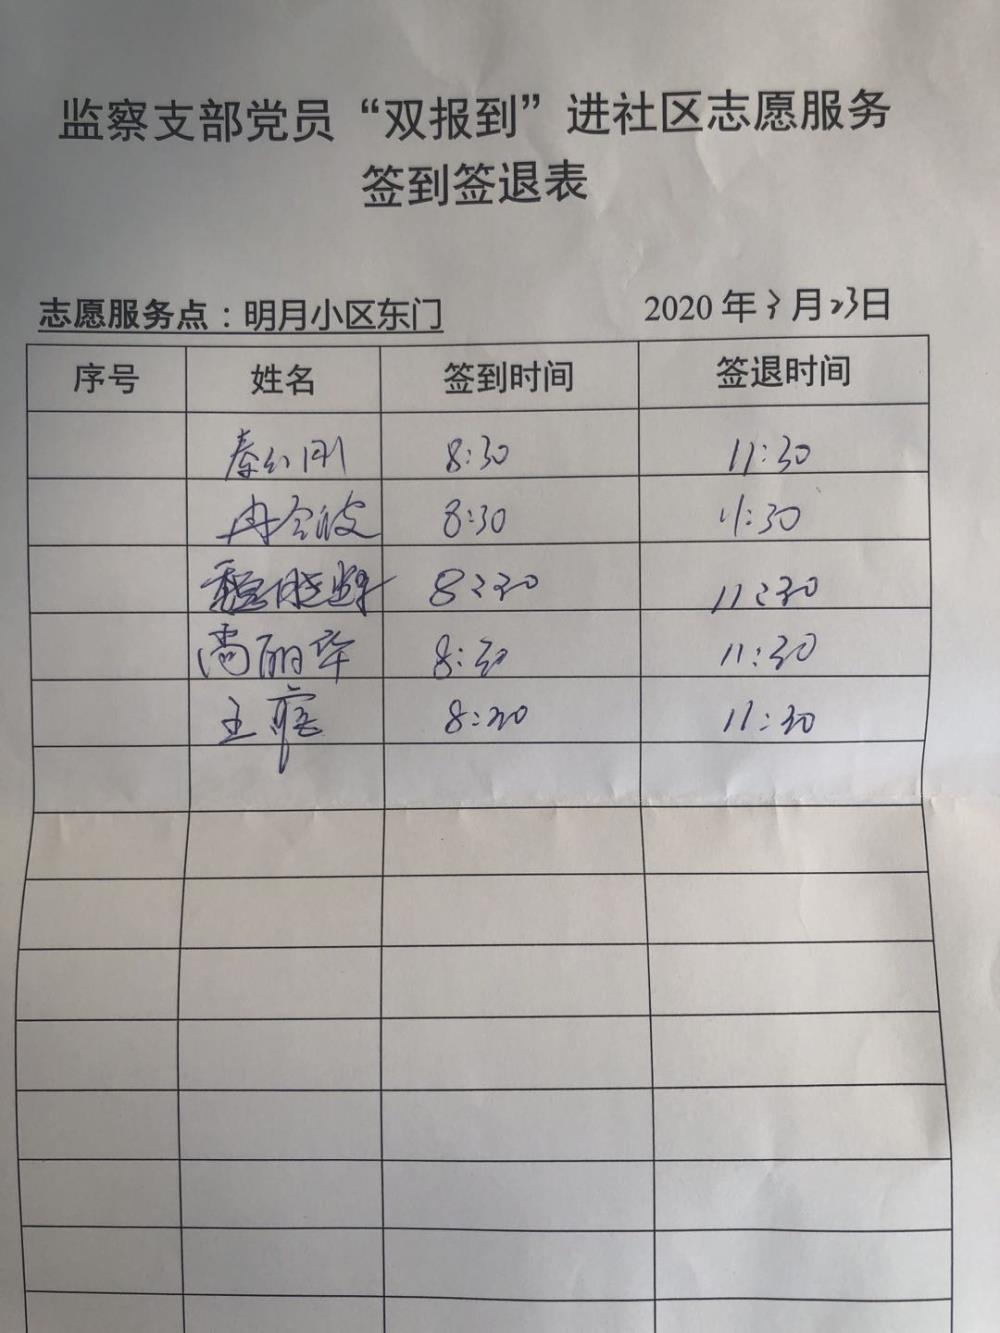 监察支部党员“双报到”进社区志愿服务
签到签退表
志愿服务点：明月小区东门 2020年3月23日
序号 姓名 签到时间 签退时间
8:30 11:30
8:30 11:30
8:30 11:30
尚丽华 8:30 11:30
王 8:30 11:30